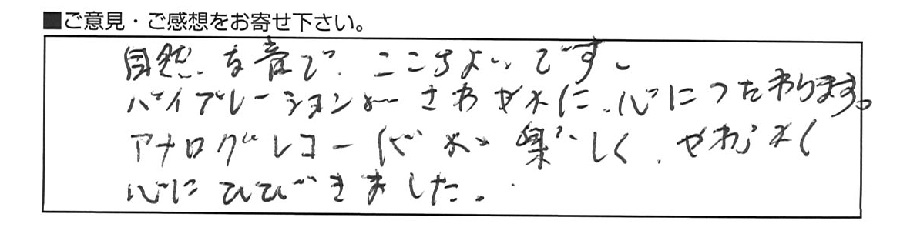 ■ご意見・ご感想をお寄せ下さい。
自然な音で、ここちよいです。
バイブレーションが さわやかに、心につたわります。
アナログレコードが 楽しく、やわらかく
心にひびきました。